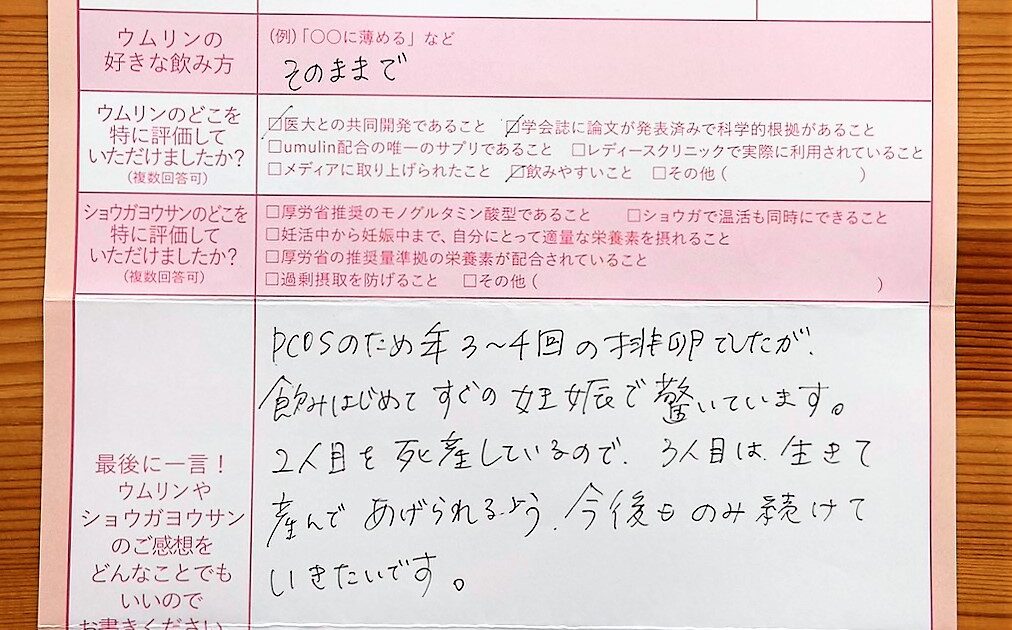 ウムリンの
好きな飲み方
(例)「〇〇に薄める」など
そのままで
ウムリンのどこを
特に評価して
いただけましたか?
(複数回答可)
☑医大との共同開発であること ☑学会誌に論文が発表済みで科学的根拠があること
□umulin配合の唯一のサプリであること □レディースクリニックで実際に利用されていること
□メディアに取り上げられたこと ☑飲みやすいこと □その他( )
ショウガヨウサンのどこを
特に評価して
いただけましたか?
(複数回答可)
□厚労省推奨のモノグルタミン酸型であること □ショウガで温活も同時にできること
□妊活中から妊娠中まで、自分にとって適量な栄養素を摂れること
□厚労省の推奨量準拠の栄養素が配合されていること
□過剰摂取を防げること □その他( )
最後に一言!
ウムリンや
ショウガヨウサン
のご感想を
どんなことでも
いいので
お書きください。
PCOSのため年3～4回の排卵でしたが、
飲みはじめてすぐの妊娠で驚いています。
2人目を死産しているので、3人目は、生きて
産んであげられるよう、今後ものみ続けて
いきたいです。